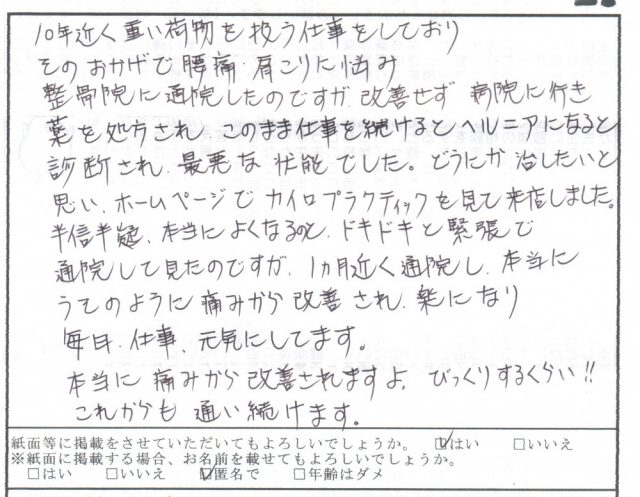 10年近く重い荷物を扱う仕事をしており
そのおかげで腰痛・肩こりに悩み
整骨院に通院したのですが、改善せず 病院に行き
薬を処方され、このまま仕事を続けるとヘルニアになると
診断され、最悪な状能でした。どうにか治したいと
思い、ホームページでカイロプラクティックを見て来店しました。
半信半疑、本当によくなるのと、ドキドキと緊張で
通院して見たのですが、1ヵ月近く通院し、本当に
うそのように痛みから改善され、楽になり
毎日、仕事、元気にしてます。
本当に痛みから改善されますよ、びっくりするくらい!!
これからも通い続けます。
紙面等に掲載をさせていただいてもよろしいでしょうか。 ☑はい □いいえ
※紙面に掲載する場合、お名前を載せてもよろしいでしょうか。
□はい □いいえ ☑匿名で □年齢はダメ